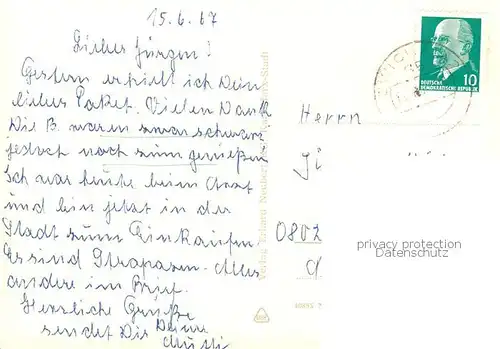 15.6.67
Lieber Jürgen!
Gestern erhielt ich Dein
liebes Paket. Vielen Dank
Die B. waren zwar schwarz
jedoch noch zum genießen
Ich war heute beim Arzt
und bin jetzt in der
Stadt zum Einkaufen.
Es sind Strapazen. Alles
andere im Brief.
Herzliche Grüße
sendet Dir Deine
Mutti
10
DEUTSCHE
DEMOKRATISCHE REPUBLIK
Herrn
0802
privacy protection
Datenschutz
Verlag